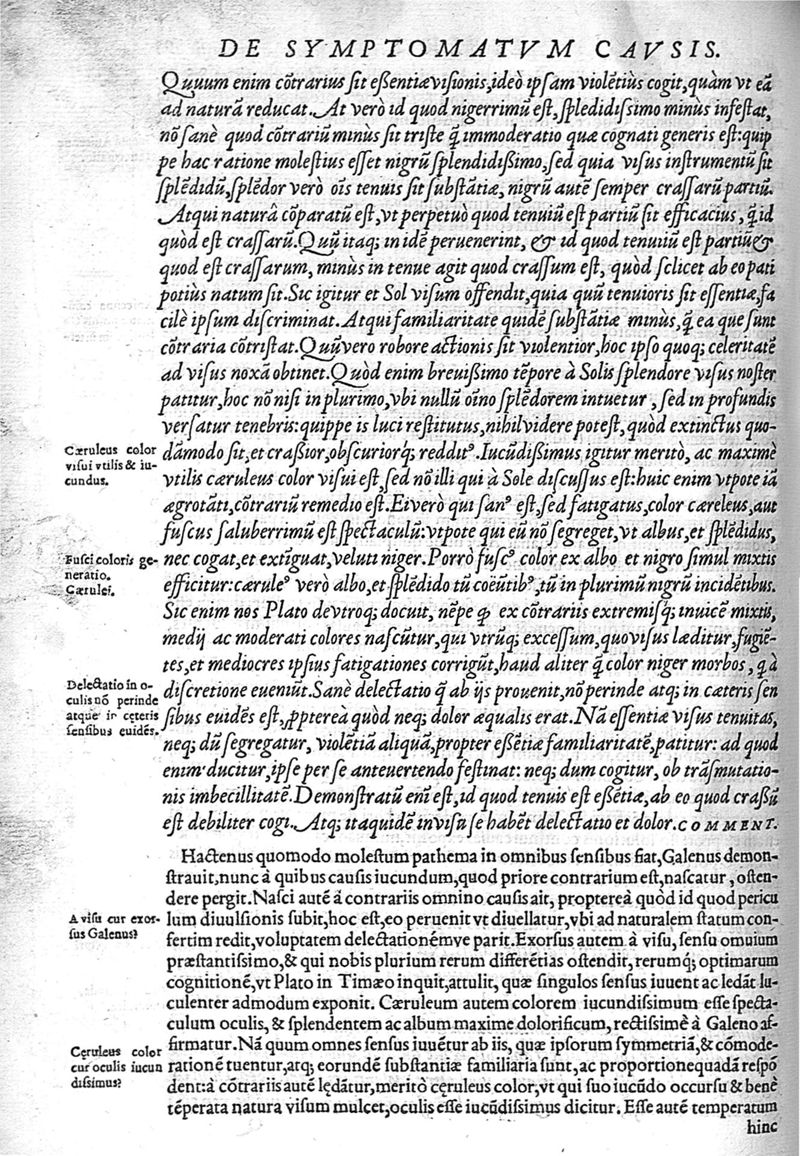 DE SYMPTOMATVM CAVSIS.
Quuum enim cõtrarius sit eßentiæ visionis, ideò ipsam violẽtiùs cogit, quàm vt eã
ad naturã reducat. At verò id quod nigerrimũ est, splẽdidissimo minùs infestat,
nõ sanè quod cõtrariũ minùs sit triste q̃ immoderatio quæ cognati generis est: quip
pe hac ratione molestius esset nigrũ splendidißimo, sed quia visus instrumentũ sit
splẽdidũ, splẽdor verò oĩs tenuis sit substãtiæ, nigrũ autẽ semper crassarũ partiũ.
Atqui naturâ cõparatũ est, vt perpetuò quod tenuiũ est partiũ sit efficacius, q̃ id
quòd est crassarũ. Quũ itaq; in idẽ peruenerint, & id quod tenuiũ est partiũ &
quod est crassarum, minùs in tenue agit quod crassum est, quòd sclicet ab eo pati
potiùs natum sit. Sic igitur et Sol visum offendit, quia quũ tenuioris sit essentiæ, fa
cilè ipsum discriminat. Atqui familiaritate quidẽ substãtiæ minùs, q̃ ea que sunt
cõtraria cõtristat. Quũ vero robore actionis sit violentior, hoc ipso quoq; celeritatẽ
ad visus noxã obtinet. Quòd enim breuißimo tẽpore à Solis splendore visus noster
patitur, hoc nõ nisi in plurimo, vbi nullũ oĩno splẽdorem intuetur, sed in profundis
versatur tenebris: quippe is luci restitutus, nihil videre potest, quòd extinctus quo-
Cæruleus color
visui vtilis & iu-
cundus.
dãmodo sit, et craßior, obscuriorq́; redditꝰ. Iucũdißimus igitur meritò, ac maximè
vtilis cæruleus color visui est, sed nõ illi qui à Sole discussus est: huic enim vtpote iã
ægrotãti, cõtrariũ remedio est. Ei verò qui sanꝰ est, sed fatigatus, color cæreleus, aut
fuscus saluberrimũ est spectaculũ: vtpote qui eũ nõ segreget, vt albus, et splẽdidus,
Fusci coloris ge-
neratio.
Cærulei.
nec cogat, et extĩguat, veluti niger. Porrò fuscꝰ color ex albo et nigro simul mixtis
efficitur: cæruleꝰ verò albo, et splẽdido tũ coëũtibꝰ, tũ in plurimũ nigrũ incidẽtibus.
Sic enim nos Plato de vtroq; docuit, nẽpe ꝙ ex cõtrariis extremisq́; inuicẽ mixtis,
medij ac moderati colores nascũtur, qui vtrũq; excessum, quo visus læditur, fugiẽ-
tes, et mediocres ipsius fatigationes corrigũt, haud aliter q̃ color niger morbos, q à
Delectatio in o-
culis nõ perinde
atque in cęteris
sensibus euidẽs.
discretione eueniũt. Sanè delectatio q̃ ab ijs prouenit, nõ perinde atq; in cæteris sen
sibus euidẽs est, ꝓptereà quòd neq; dolor æqualis erat. Nã essentiæ visus tenuitas,
neq; dũ segregatur, violẽtiã aliquã, propter eßẽtiæ familiaritatẽ, patitur: ad quod
enim ducitur, ipse per se anteuertendo festinat: neq; dum cogitur, ob trãsmutatio-
nis imbecillitatẽ. Demonstratũ enĩ est, id quod tenuis est eßẽtiæ, ab eo quod craßũ
est debiliter cogi. Atq; ita quidẽ in visu se habẽt delectatio et dolor. COMMENT.
Hactenus quomodo molestum pathema in omnibus sensibus fiat, Galenus demon-
strauit, nunc à quibus causis iucundum, quod priore contrarium est, nascatur, osten-
dere pergit. Nasci autẽ à contrariis omnino causis ait, proptereà quòd id quod pericu
A visu cur exor-
sus Galenus?
lum diuulsionis subit, hoc est, eo peruenit vt diuellatur, vbi ad naturalem statum con-
fertim redit, voluptatem delectationẽmve parit. Exorsus autem à visu, sensu omuium
præstantissimo, & qui nobis plurium rerum differẽtias ostendit, rerumq́; optimarum
cognitionẽ, vt Plato in Timæo inquit, attulit, quæ singulos sensus iuuent ac ledãt lu-
culenter admodum exponit. Cæruleum autem colorem iucundissimum esse specta-
culum oculis, & splendentem ac album maxime dolorificum, rectissimè à Galeno af-
firmatur. Nã quum omnes sensus iuuẽtur ab iis, quæ ipsorum symmetriã, & cõmode-
Cęruleus color
cur oculis iucun
dissimus?
rationẽ tuentur, atq; eorundẽ substantiæ familiaria sunt, ac proportione quadã respõ
dent: à cõtrariis autẽ lędãtur, meritò cęruleus color, vt qui suo iucũdo occursu & benè
tẽperata natura visum mulcet, oculis esse iucũdissimus dicitur. Esse autẽ temperatum
hinc